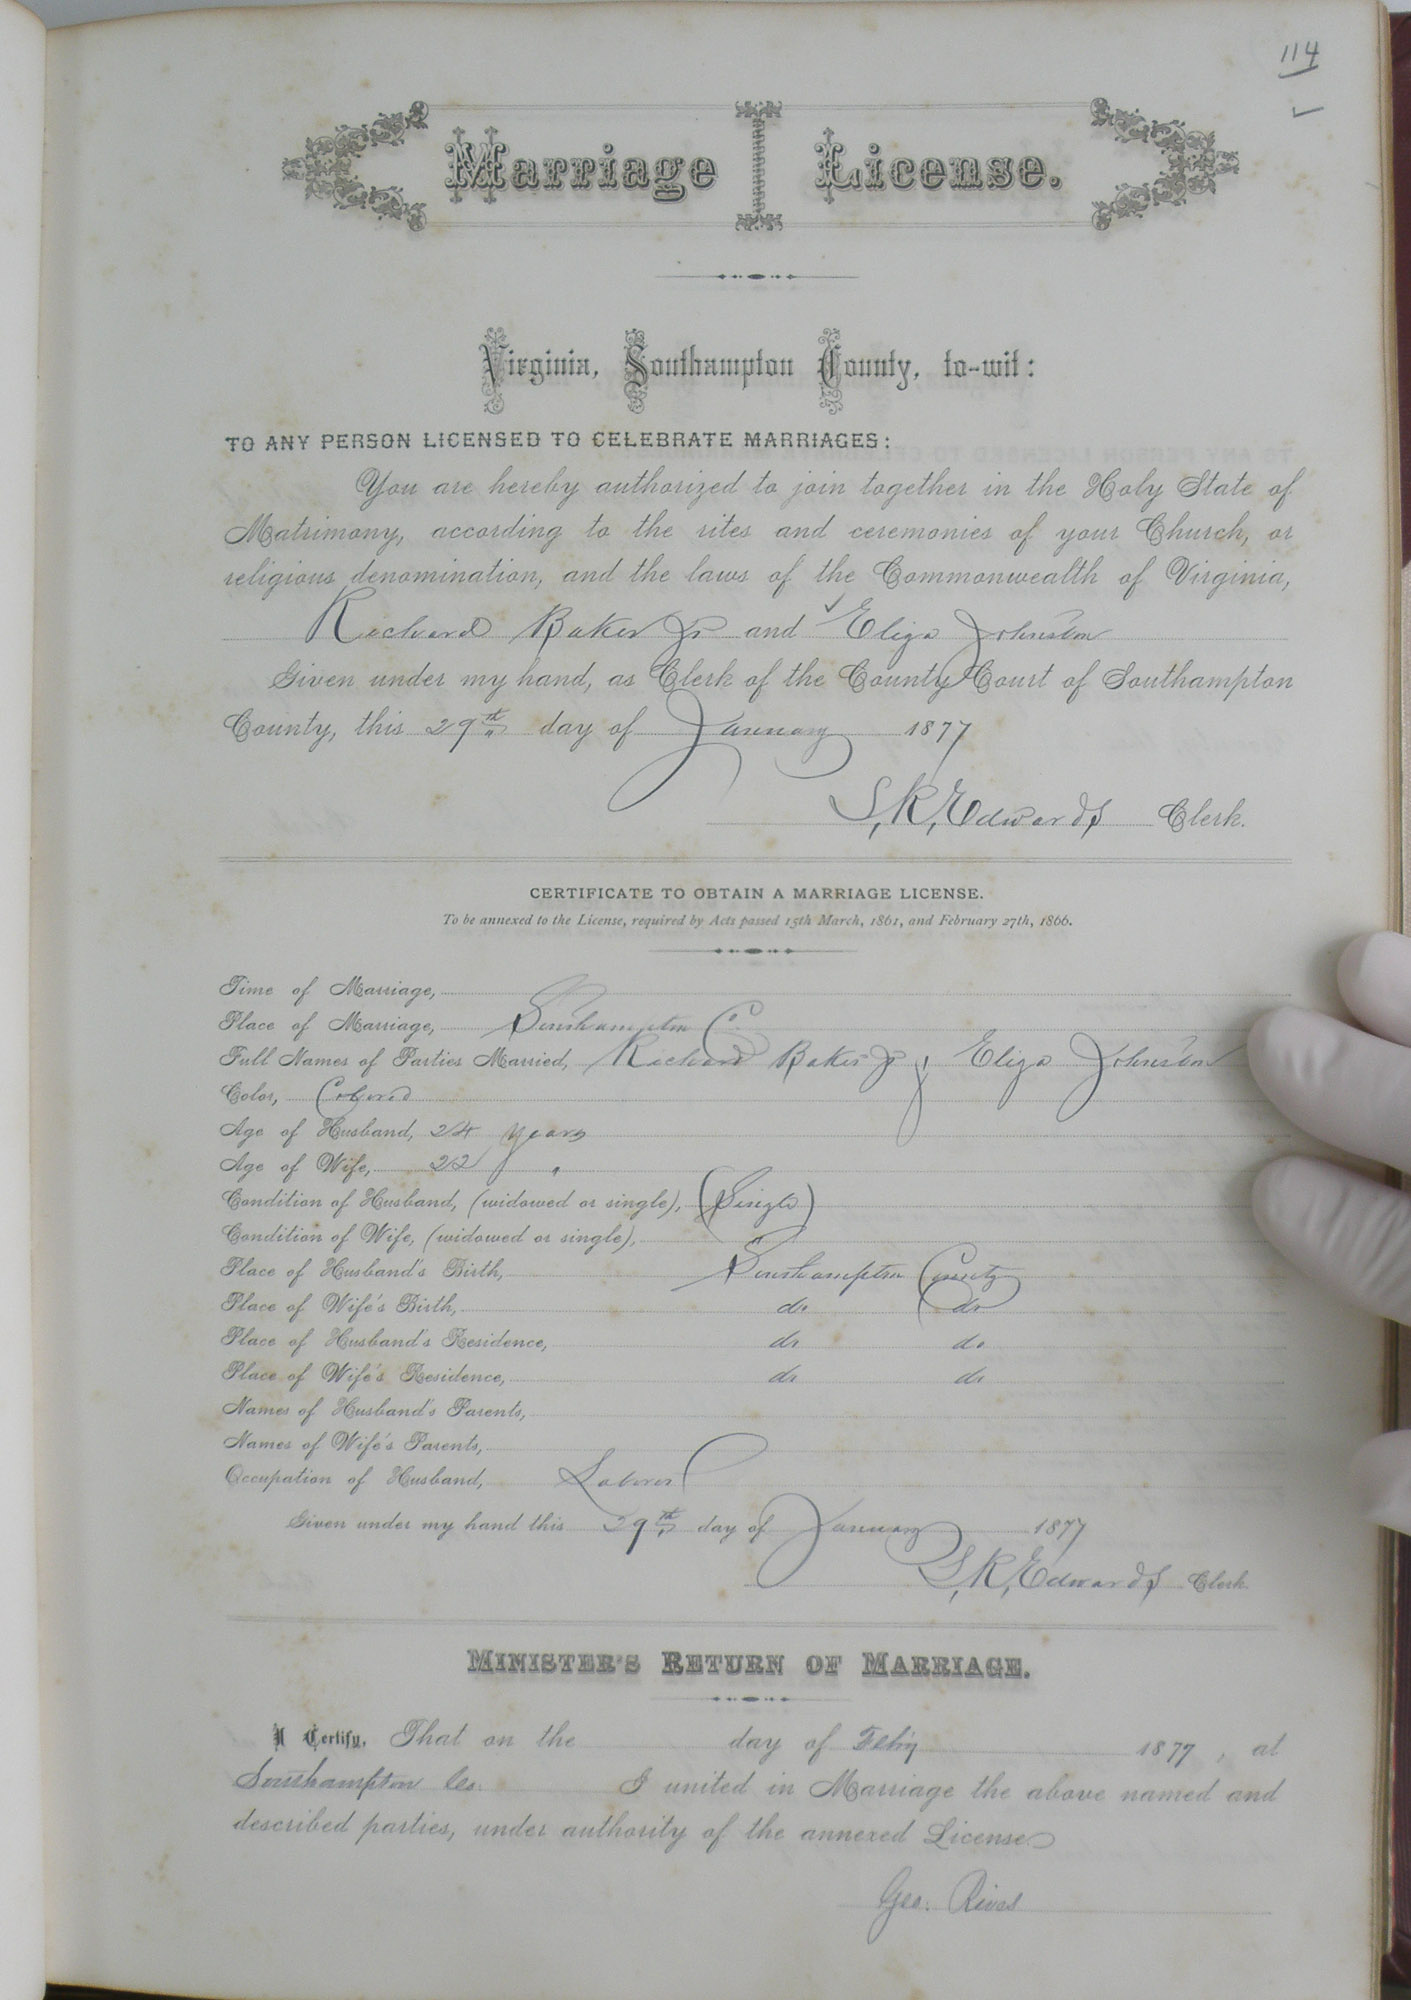 114
Marriage License.
Virginia, Southampton County, to-wit:
TO ANY PERSON LICENSED TO CELEBRATE MARRIAGES:
You are hereby authorized to join together in the Holy State of
Matrimony, according to the rites and ceremonies of your Church, or
religious denomination, and the laws of the Commonwealth of Virginia,
Richard Baker Jr and Eliza Johnston
Given under my hand, as Clerk of the County Court of Southampton
County, this 29th day of January 1877
S, R, Edwards Clerk.
CERTIFICATE TO OBTAIN A MARRIAGE LICENSE.
To be annexed to the License, required by Acts passed 15th March, 1861, and February 27th, 1866.
Time of Marriage,
Place of Marriage, Southampton Co
Full Names of Parties Married, Richard Baker Jr & Eliza Johnston
Color, Colored
Age of Husband, 24 years
Age of Wife, 22 "
Condition of Husband, (widowed or single), (Single)
Condition of Wife, (widowed or single),
Place of Husband's Birth, Southampton County
Place of Wife's Birth, do do
Place of Husband's Residence, do do
Place of Wife's Residence, do do
Names of Husband's Parents,
Names of Wife's Parents,
Occupation of Husband, Laborer
Given under my hand this 29th day of January 1877
S, R, Edwards Clerk
MINISTER'S RETURN OF MARRIAGE.
I Certify, That on the day of Feb'y 1877, at
Southampton Co. I united in Marriage the above named and
described parties, under authority of the annexed License
Geo. Rives